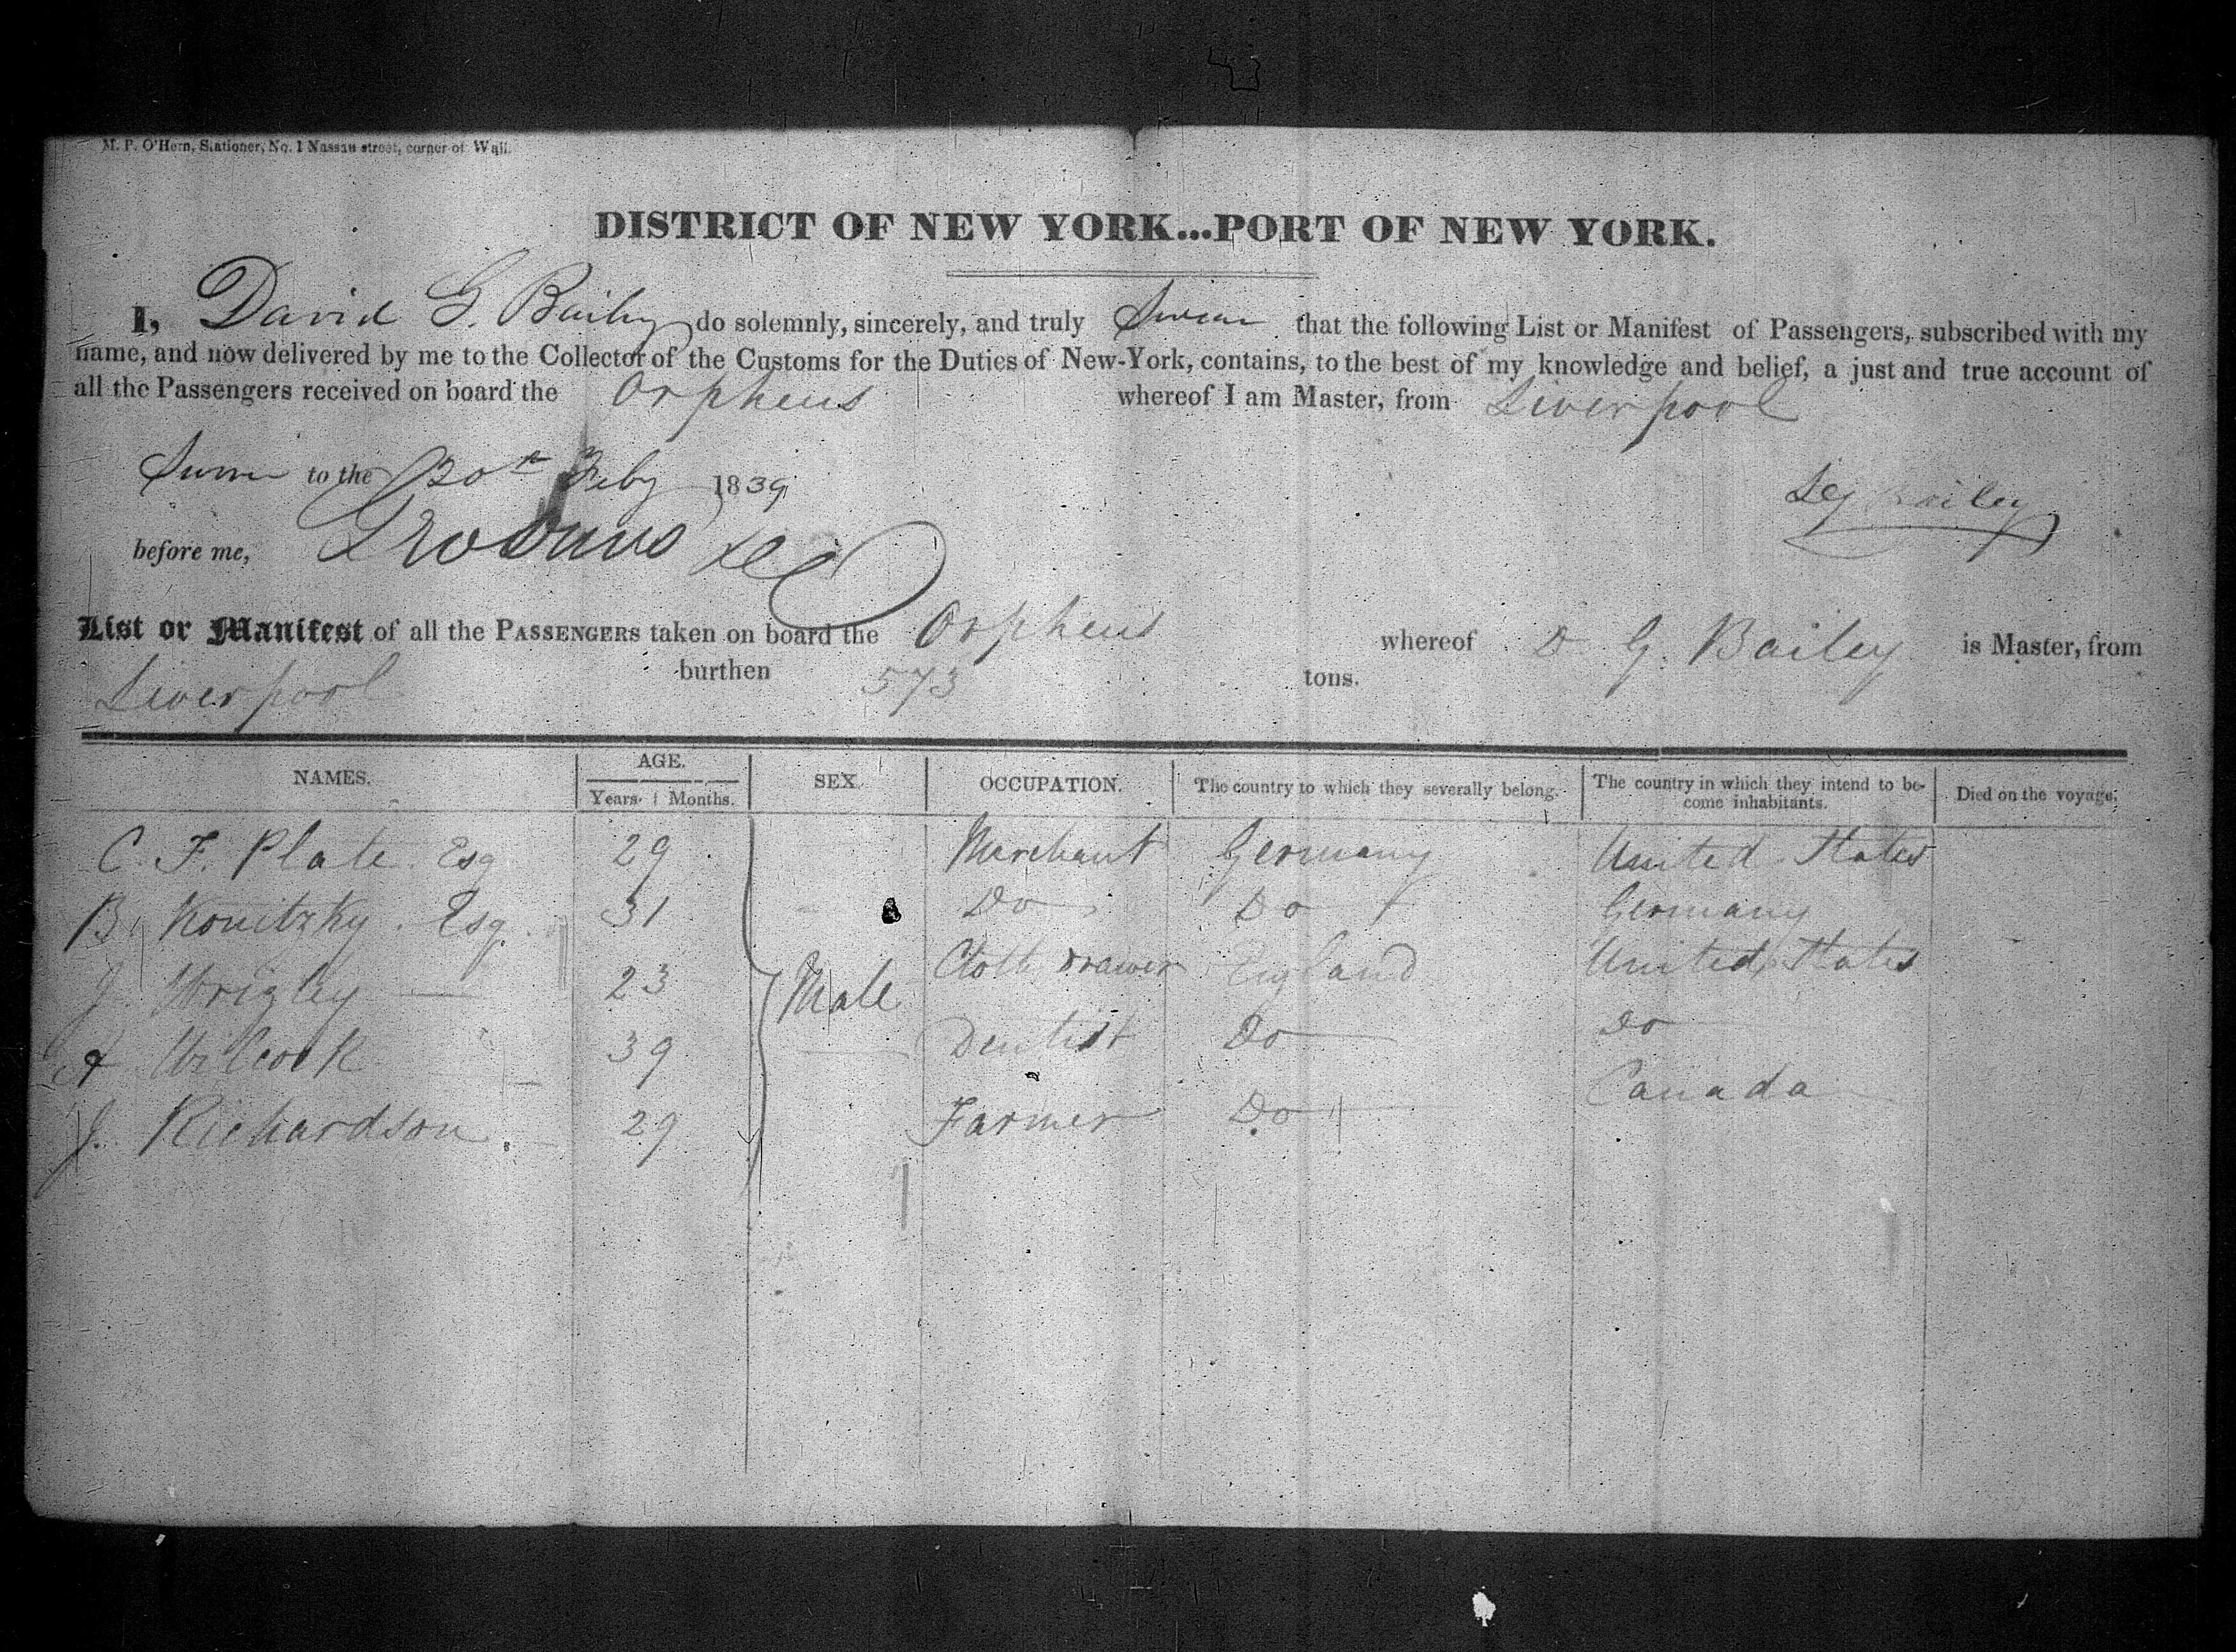 M. P. O'Hern, Stationer, No. 1 Nassau street, corner of Wall.
DISTRICT OF NEW YORK...PORT OF NEW YORK.
I, David G. Baily do solemnly, sincerely, and truly Swear that the following List or Manifest of Passengers, subscribed with my
name, and now delivered by me to the Collector of the Customs for the Duties of New-York, contains, to the best of my knowledge and belief, a just and true account of
all the Passengers received on board the Orpheus whereof I am Master, from Liverpool
Sworn to the 20th Feby 1839
before me,
Bailey
List or Manifest of all the PASSENGERS taken on board the Orpheus whereof D G. Bailey is Master, from
Liverpool burthen 573 tons.
NAMES. AGE. Years. Months. SEX. OCCUPATION. The country to which they severally belong. The country in which they intend to become inhabitants. Died on the voyage.
C. F. Plate. Esq 29 Merchant Germany United States
B. Konitzky. Esq. 31 Do Do Germany
J. Wrigley 23 Male Cloth Drawer England United States
A Wilcock 39 Dentist Do Do
J. Richardson 29 Farmer Do Canada